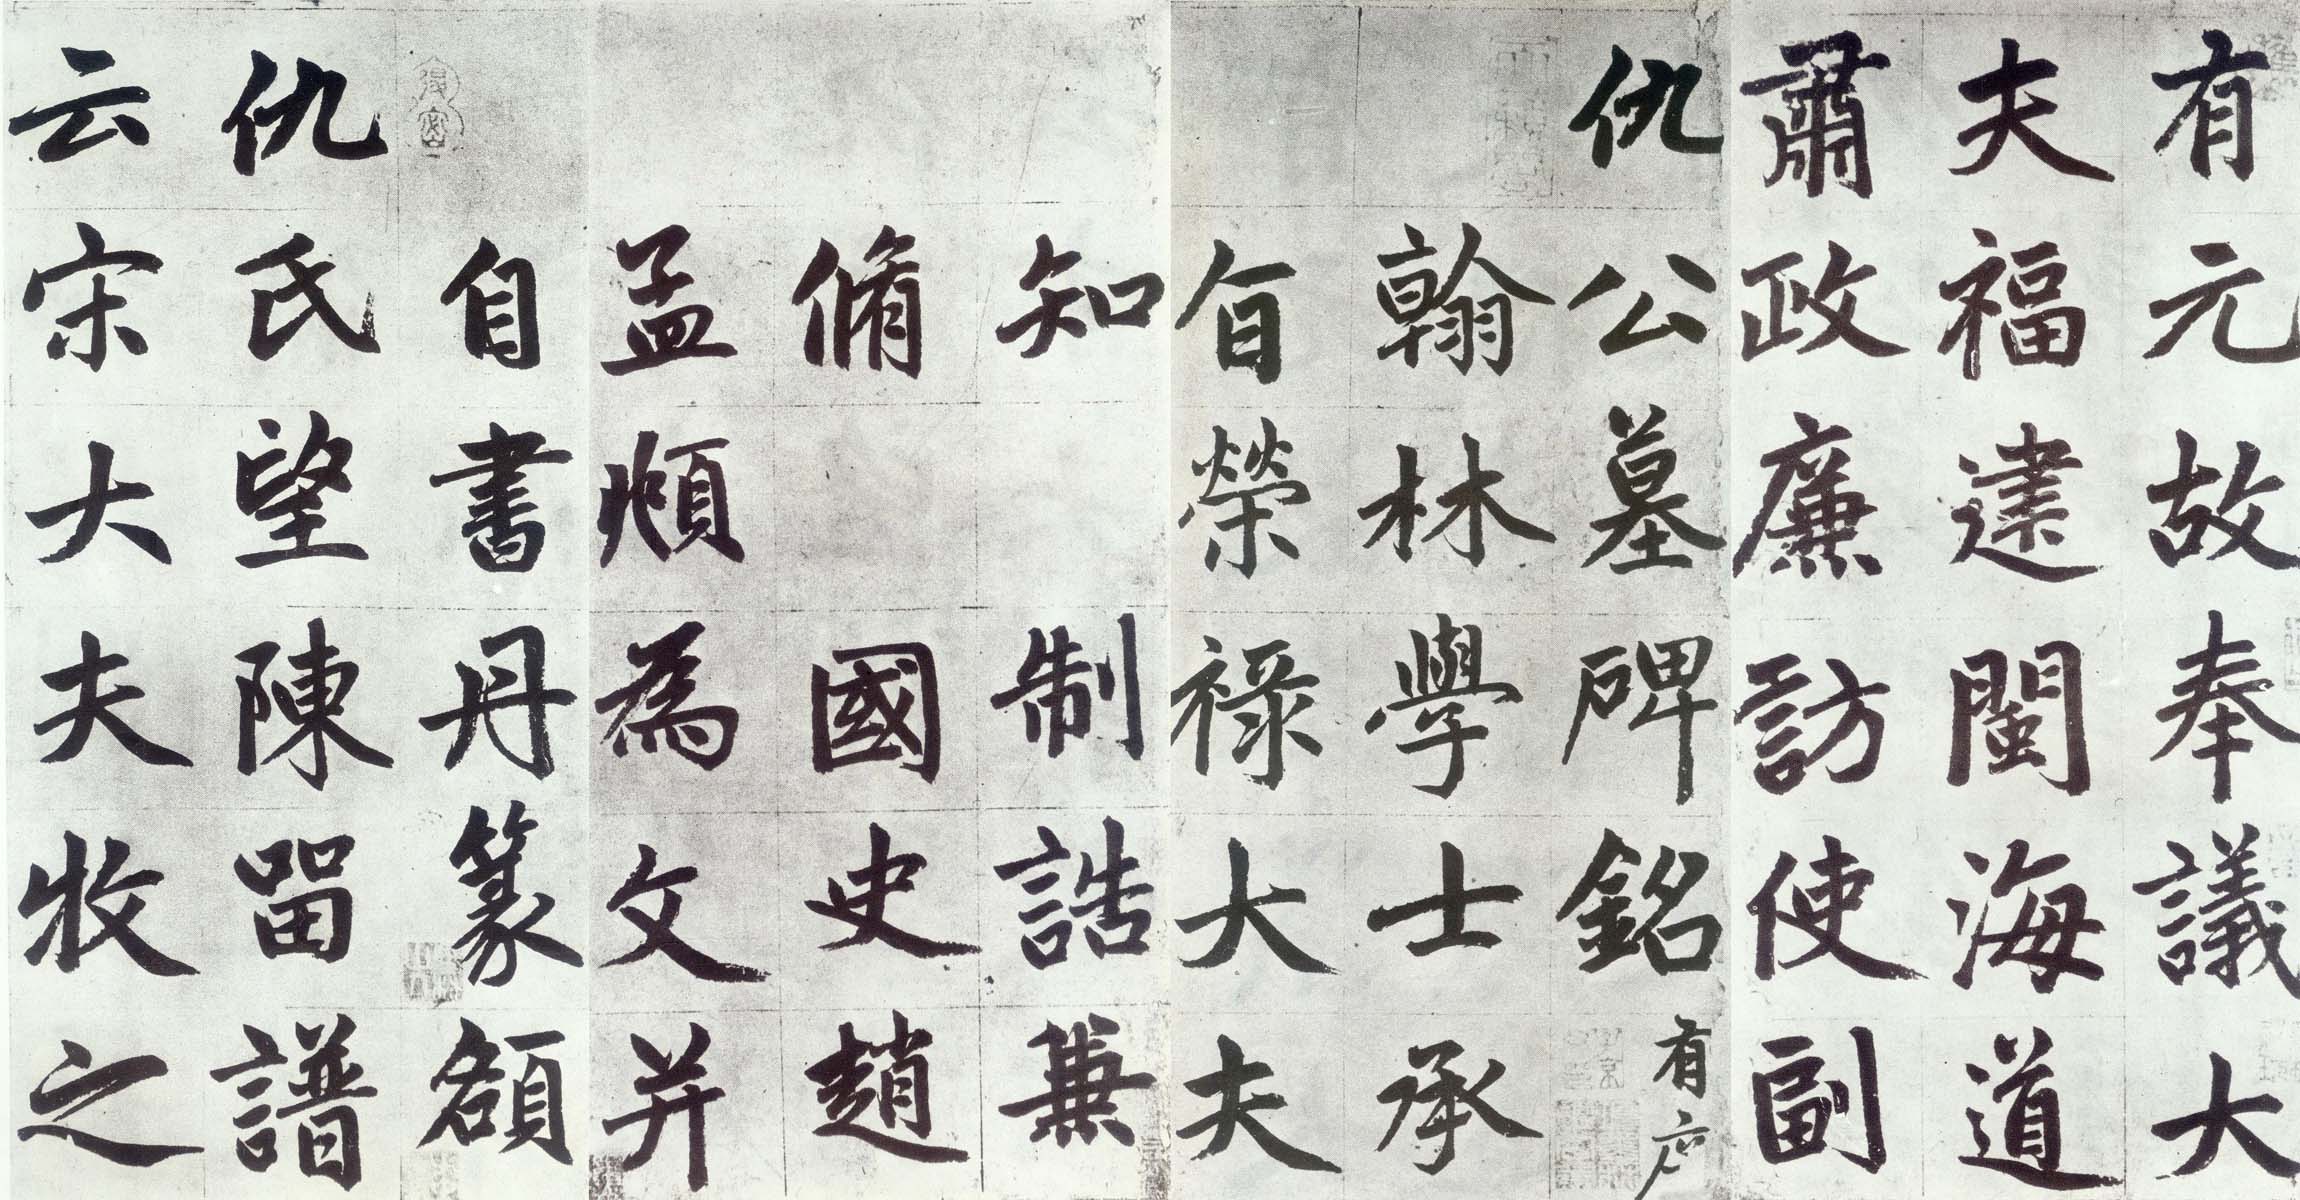 有元故奉議大
夫福建閩海道
肅政廉訪使副
仇公墓碑銘
有序
翰林學士承
旨榮祿大夫
知制誥兼
脩國史趙
孟頫為文并
自書丹篆額
仇氏望陳留譜
云宋大夫牧之